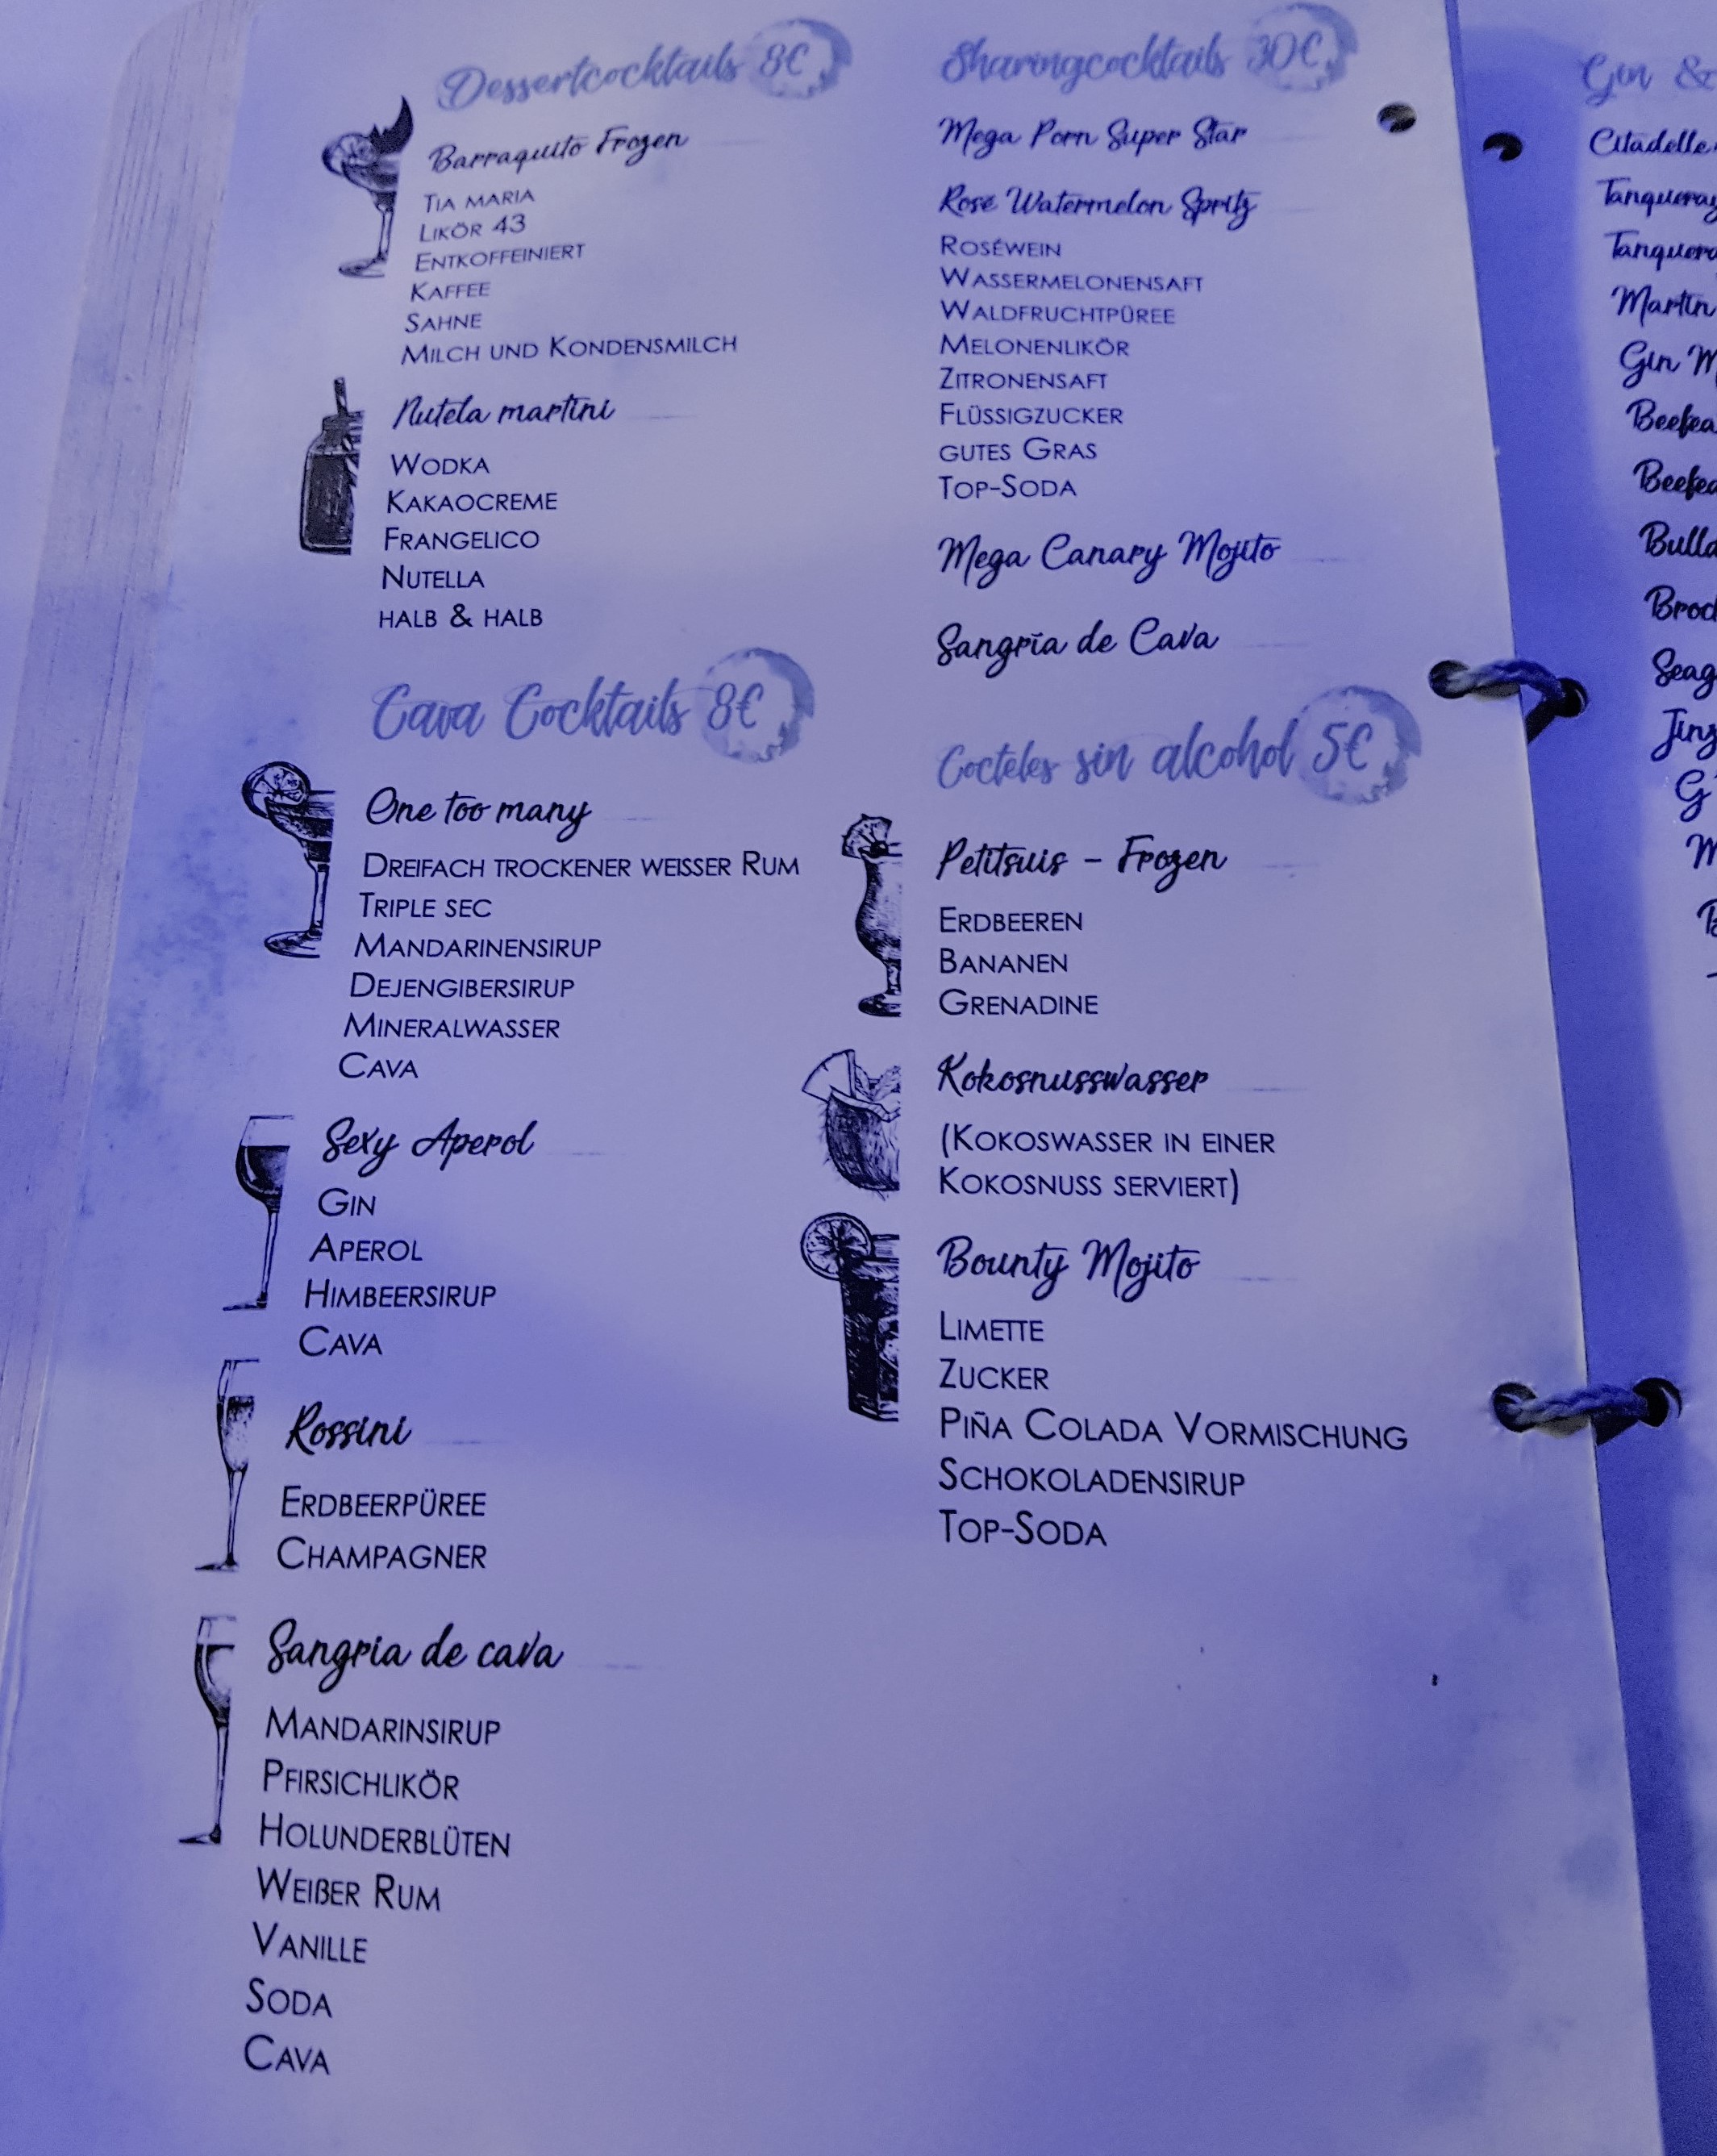 Dessertcocktails 8€
Barraquito Frozen
Tia Maria
Likör 43
Entkoffeiniert
Kaffee
Sahne
Milch und Kondensmilch
Nutela martini
Wodka
Kakaocreme
Frangelico
Nutella
halb & halb
Cava Cocktails 8€
One too many
Dreifach trockener weisser Rum
Triple sec
Mandarinensirup
Dejengibersirup
Mineralwasser
Cava
Sexy Aperol
Gin
Aperol
Himbeersirup
Cava
Rossini
Erdbeerpüree
Champagner
Sangria de cava
Mandarinsirup
Pfirsichlikör
Holunderblüten
Weißer Rum
Vanille
Soda
Cava
Sharingcocktails 30€
Mega Porn Super Star
Rosé Watermelon Spritz
Roséwein
Wassermelonensaft
Waldfruchtpüree
Melonenlikör
Zitronensaft
Flüssigzucker
gutes Gras
Top-Soda
Mega Canary Mojito
Sangría de Cava
Cocteles sin alcohol 5€
Petitsuis - Frozen
Erdbeeren
Bananen
Grenadine
Kokosnusswasser
(Kokoswasser in einer
Kokosnuss serviert)
Bounty Mojito
Limette
Zucker
Piña Colada Vormischung
Schokoladensirup
Top-Soda
Gin &
Citadelle
Tanqueray
Martin
Gin M